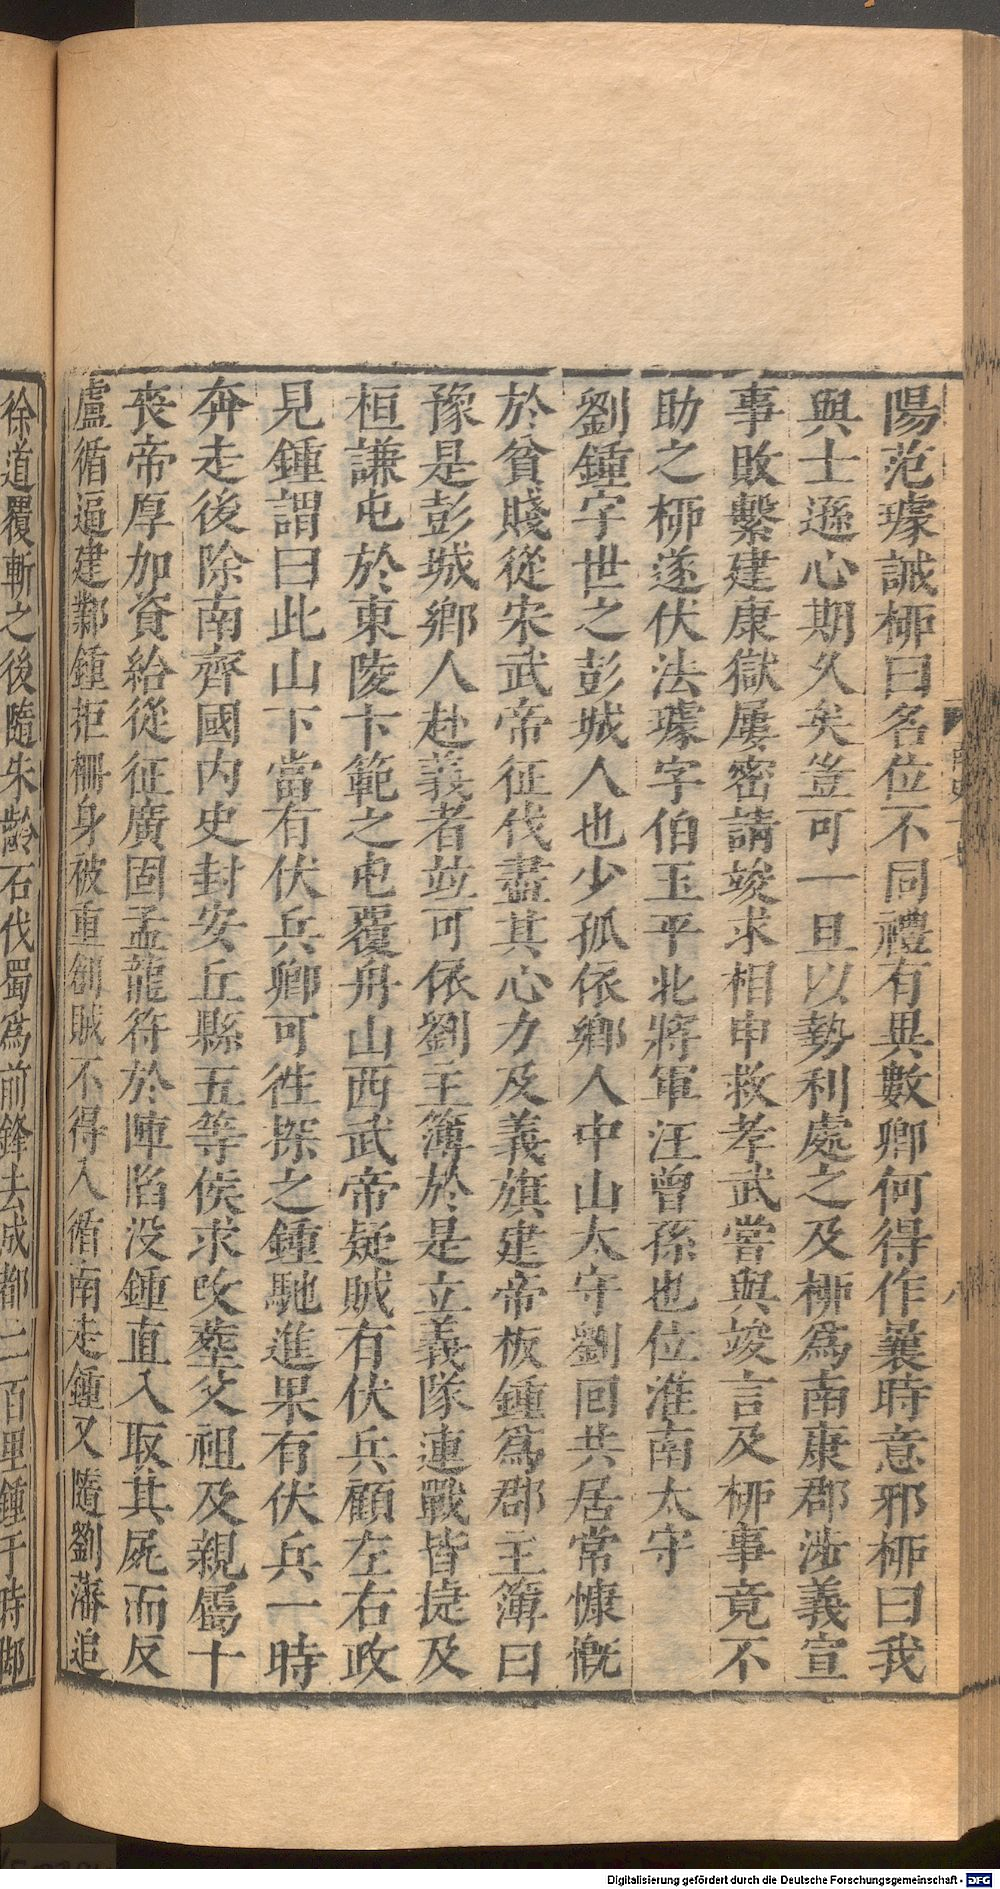 陽范璩誠栁曰名位不同禮有異數卿何得作曩時意邪栁曰我
與士遜心期久矣豈可一旦以勢利處之及栁為南康郡涉義宣
事敗繫建康獄屢密請竣求相申救孝武嘗與竣言及栁事竟不
助之栁遂伏法璩字伯玉平北將軍汪曾孫也位淮南太守
劉鍾字世之彭城人也少孤依鄉人中山太守劉回共居常慷慨
於貧賤從宋武帝征伐盡其心力及義旗建帝板鍾為郡主簿曰
豫是彭城鄉人赴義者竝可依劉主簿於是立義隊連戰皆捷及
桓謙屯於東陵卞範之屯覆舟山西武帝疑賊有伏兵顧左右政
見鍾謂曰此山下當有伏兵卿可徃探之鍾馳進果有伏兵一時
奔走後除南齊國内史封安丘縣五等侯求改塟父祖及親屬十
喪帝厚加資給從征廣固孟龍符於陣陷没鍾直入取其屍而反
盧循逼建鄴鍾拒柵身被重創賊不得入循南走鍾又隨劉藩追
徐道覆斬之後隨朱齡石伐蜀為前鋒去成都二百里鍾于時
Digitalisierung gefördert durch die Deutsche Forschungsgemeinschaft - DFG